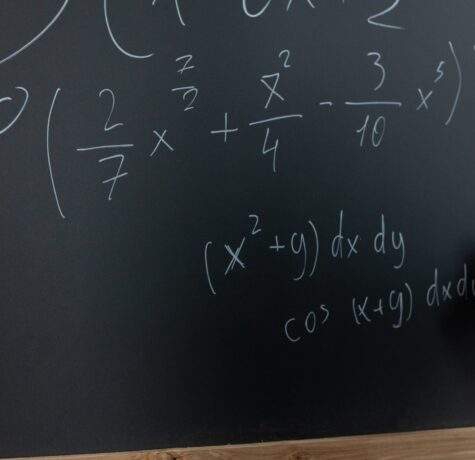 (2/7 x^(7/2) + x^2/4 - 3/10 x^5)
(x^2+y) dx dy
cos (x+y) dx dy